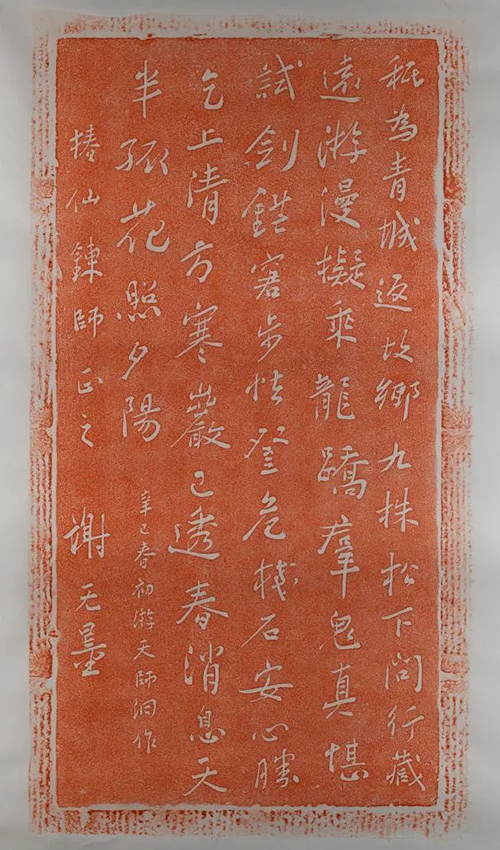 秖為青城返故鄉九株松下問行藏
遠游漫擬乘龍蹻羣鬼真堪
試劍鋩窘步怯登危棧石安心勝
乞上清方寒巖已透春消息天
半孤花照夕陽
辛巳春初游天師洞作
椿仙鍊師正之 謝无量